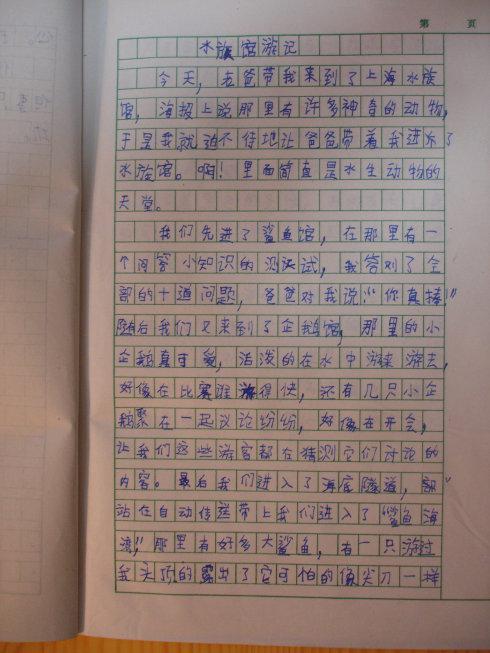 第 页
水族馆游记
今天，老爸带我来到了上海水族
馆，海报上说那里有许多神奇的动物，
于是我就迫不待地让爸爸带着我进了
水族馆。啊！里面简直是水生动物的
天堂。
我们先进了鲨鱼馆，在那里有一
个问答小知识的测试，我答对了全
部的十道问题，爸爸对我说："你真棒！"
随后我们又来到了企鹅馆，那里的小
企鹅真可爱，活泼的在水中游来游去，
好像在比赛谁游得快，还有几只小企
鹅聚在一起议论纷纷，好像在开会，
让我们这些游客都在猜测它们讨论的
内容。最后我们进入了海底隧道，
站在自动传送带上我们进入了"鲨鱼海
湾"，那里有好多大鲨鱼，有一只游过
我头顶的露出了它可怕的像尖刀一样